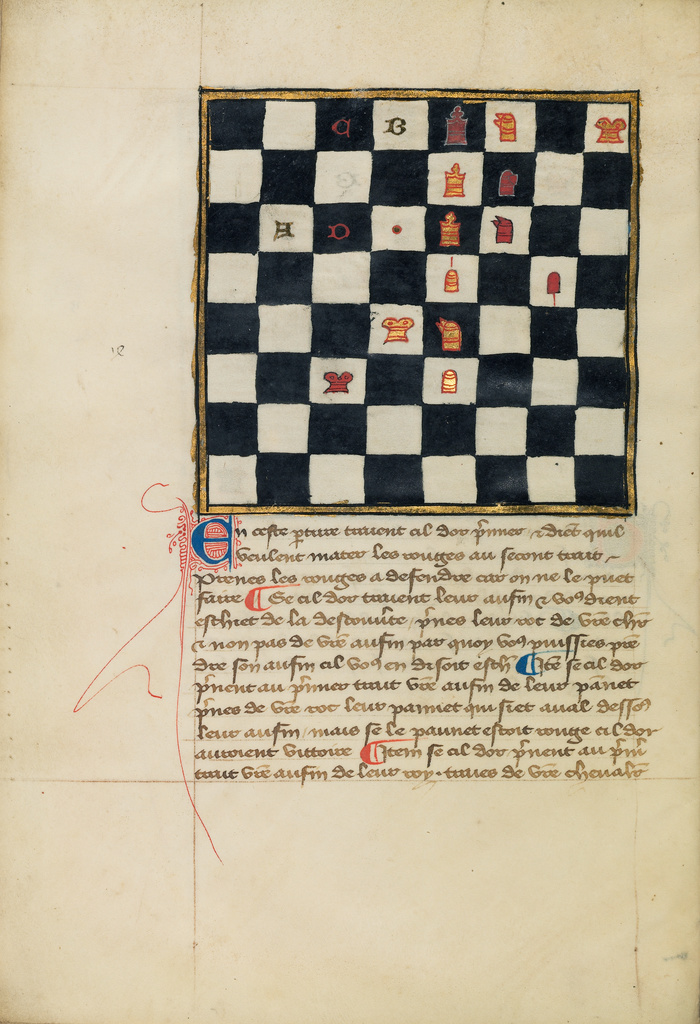 C B
A D
En ceste p̱ture traient cil dor p̄mier ⁊ dient quil
veulent mater les rouges au second trait ~
Prenes les rouges a defendre car on ne le puet
faire ¶ Se cil dor traient leur aufin ⁊ voꝰ dient
eschiet de la descouu̓te, p̄nes leur roc de vr̄e
⁊ non pas de vr̄e aufin par quoy voꝰ puissies pre
dre son aufin cil voꝰ en disoit esch̄ ¶ Itē se cil dor
p̄nent au p̄mier trait vr̄e aufin de leur paōnet
p̄nes de vr̄e roc leur paonnet qui siet aual dessoꝰ
leur aufin, mais se le paonnet estoit rouge cil dor
auroient vittoire ¶ Item se cil dor p̄nent au p̄mi̓
trait vr̄e aufin de leur roy, traies de vr̄e